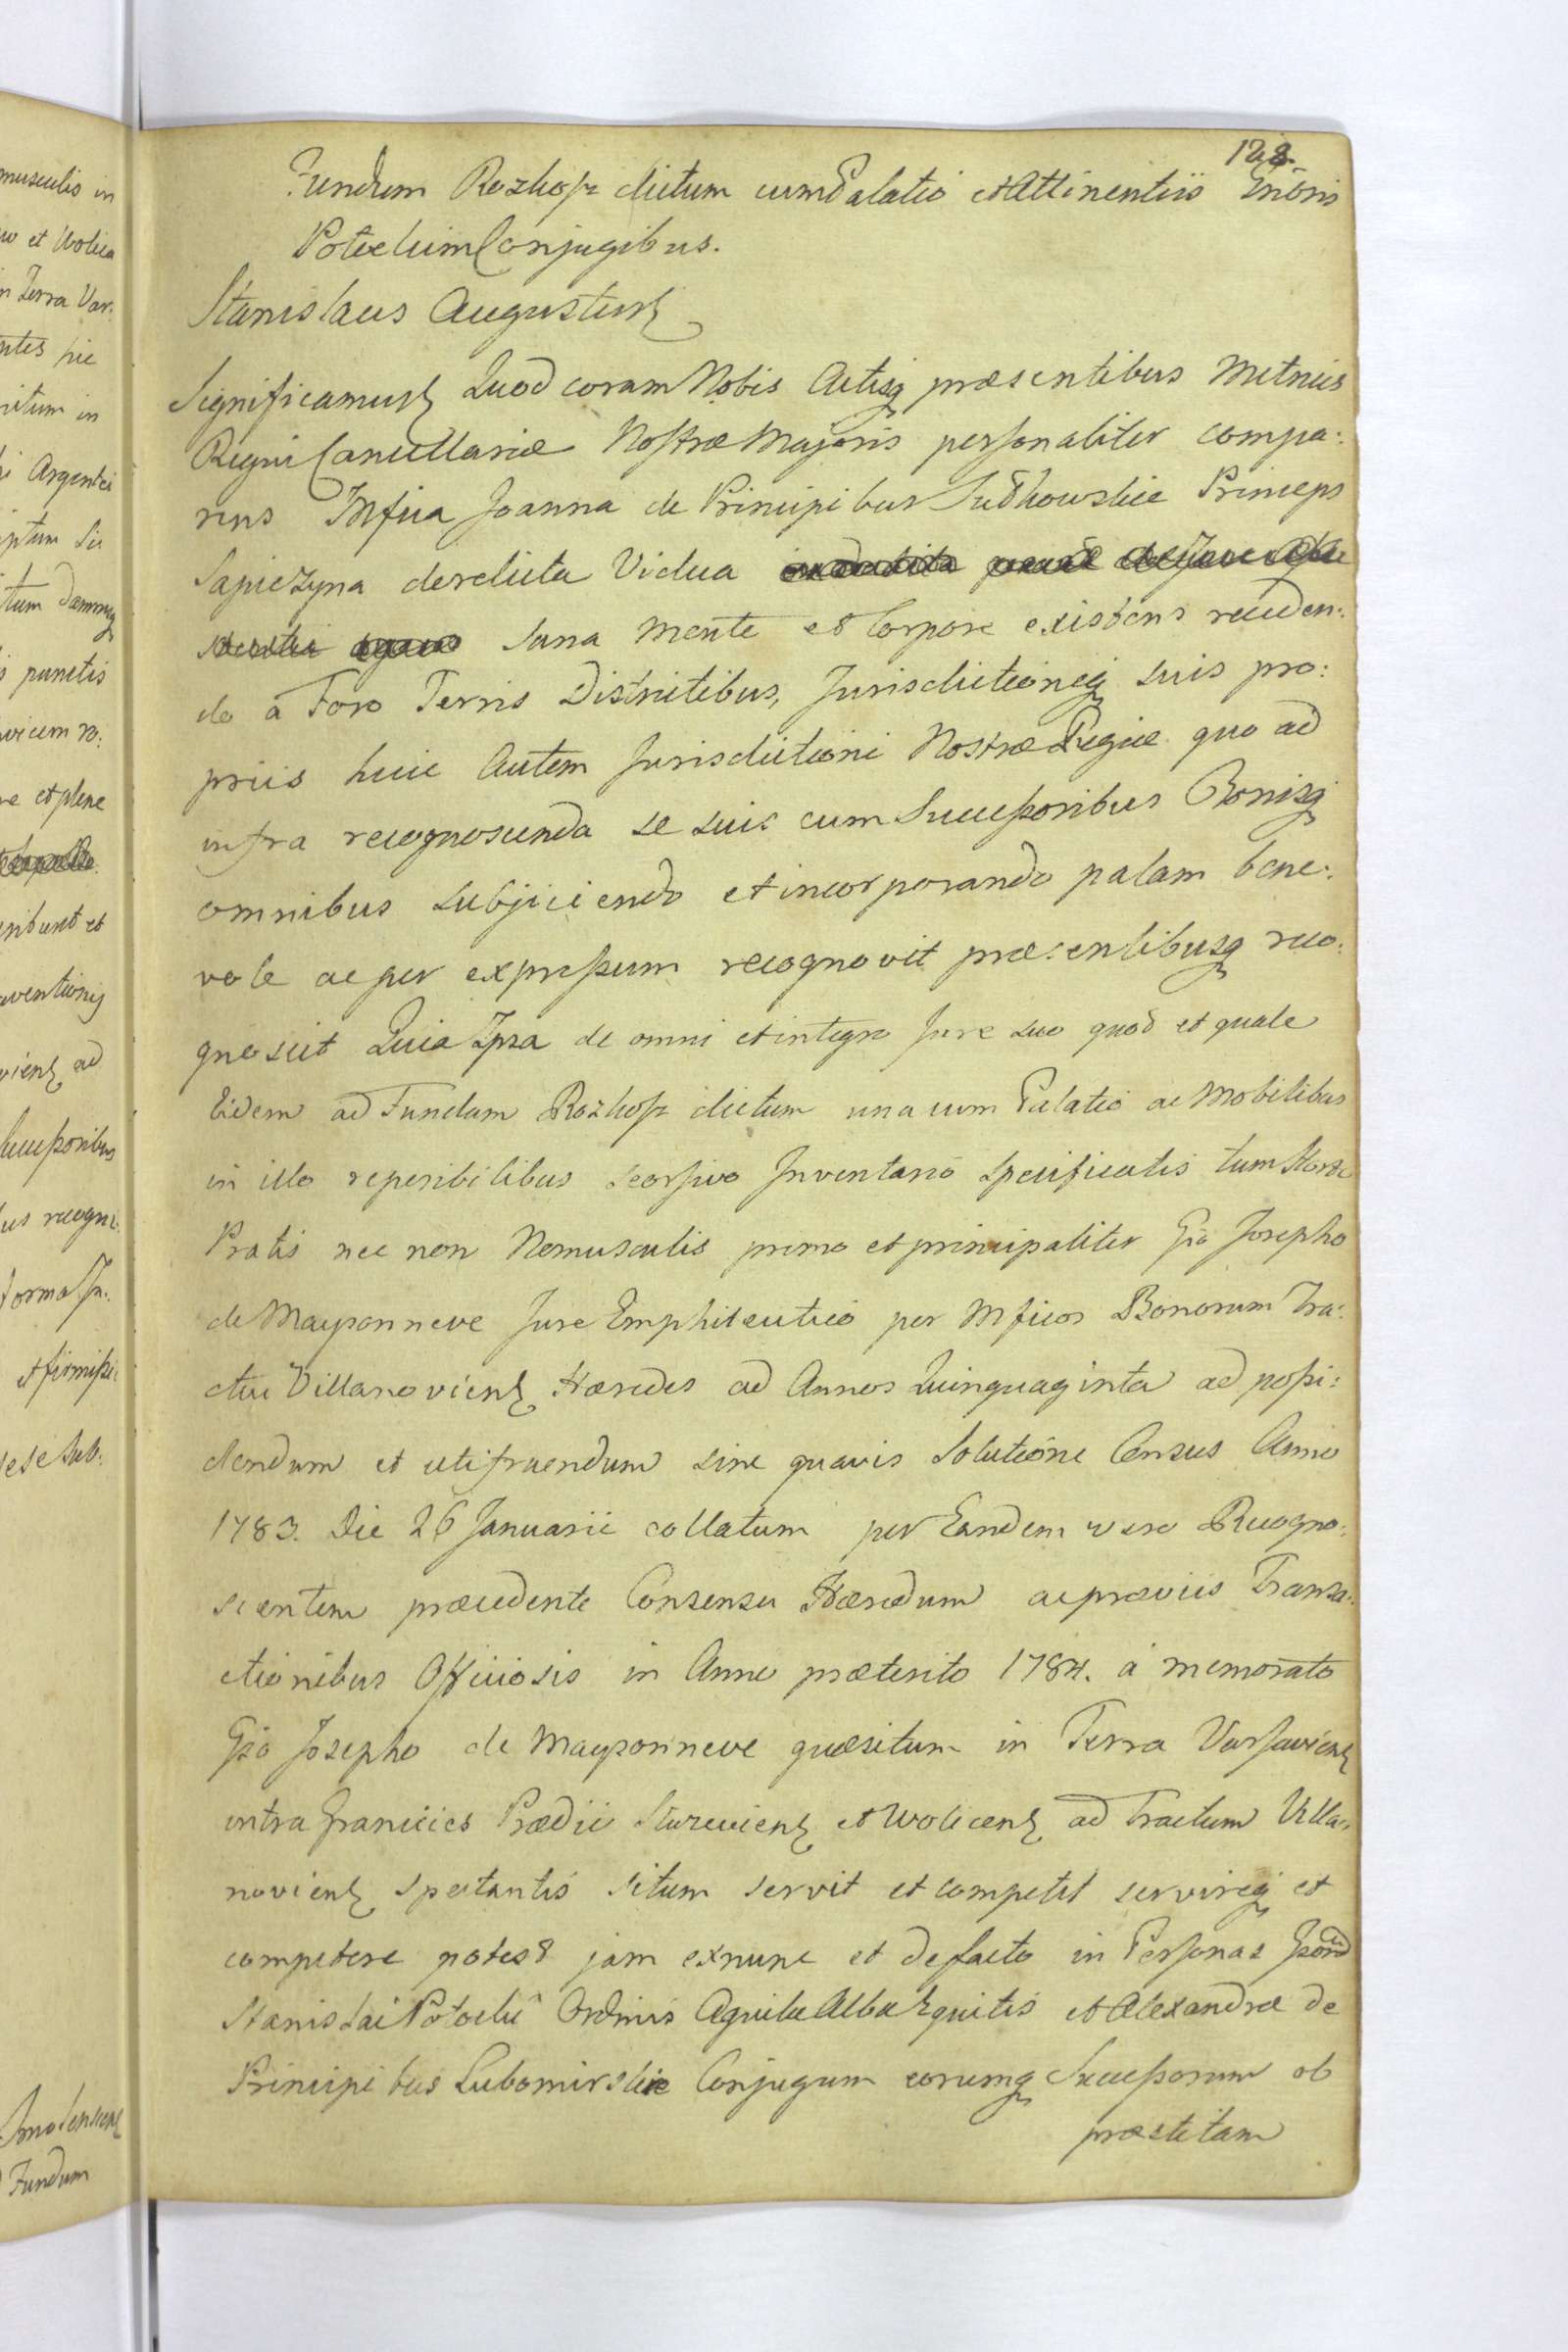 128.
Fundum Rozkosz dictum cum Palatio et Attinentiis Gnõris
Potockim Conjugibus.
Stanislaus Augustus
Significamus Quod coram Nobis Actisq præsentibus Metrices
Regni Cancellariæ Nostræ Majoris personaliter compa:
rens Mfica Joanna de Principibus Sułkowskie Princeps
Sapiezyna derelicta Vidua
sana mente et Corpore existens receden:
do a Foro Terris Districtibus, Jurisdictioneq suis pro:
priis huic autem Jurisdictioni Nostræ Regiæ quo ad
infra recognoscenda se suis cum Successoribus Bonisq
omnibus subjiciendo et incorporando palam bene:
vole ac per expressum recognovit præsentibusq reco:
gnoscit Quia Ipsa de omni et integro Jure suo quod et quale
Eidem ad Fundum Rozkosz dictum una cum Palatio ac Mobilibus
in illo reperibilibus seorsivo Inventario specificatis tum Horto
Pratis nec non Nemusculis primo et principaliter Gso Josepho
de Maysonneve Jure Emphiteutico per Mficos Bonorum Tra:
ctus Villanoviens Hæredes ad Annos Quinquaginta ad possi:
dendum et utifruendum sine quavis Solutione Census Anno
1783. Die 26 Januarii collatum per Eandem vero Recogno:
scentem præcedente Consensu Hæredum ac præviis Transa:
ctionibus Officiosis in Anno præterito 1784. a memorato
Gso Josepho de Maysonneve quæsitum in Terra Varsaviens
intra Granicies Prædii Sluzeviens et Wolicens ad Tractum Villa:
noviens spectantis situm servit et competit servireq et
competere potest jam exnunc et de facto in Personas Gsord
Stanislai Potockii Ordinis Aquilæ Albæ Equitis et Alexandræ de
Principibus Lubomirskie Conjugum eorumq Successorum ob
præstitam